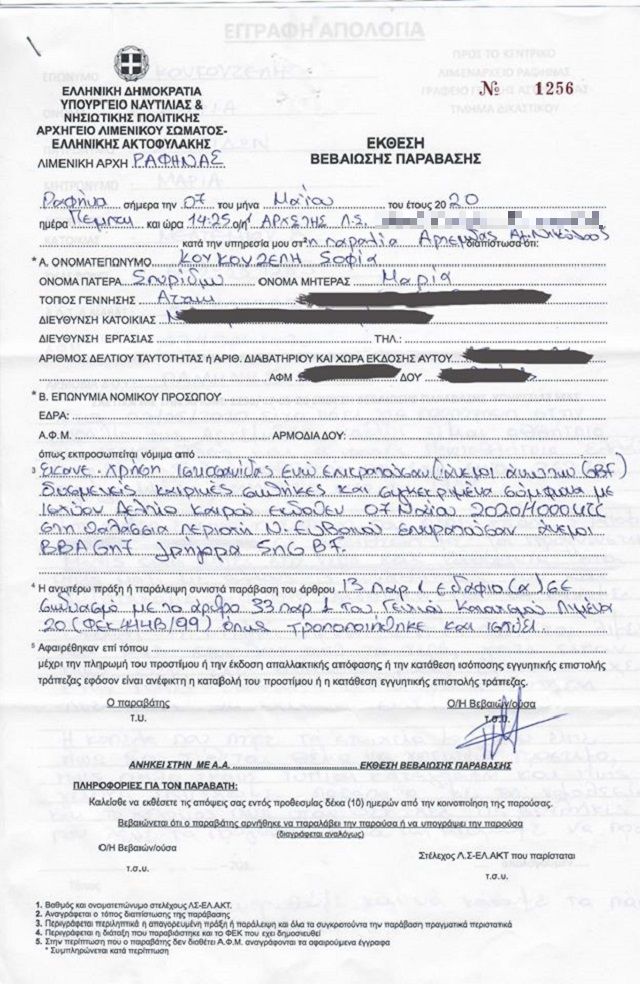 ΕΓΓΡΑΦΗ ΑΠΟΛΟΓΙΑ
ΕΛΛΗΝΙΚΗ ΔΗΜΟΚΡΑΤΙΑ
ΥΠΟΥΡΓΕΙΟ ΝΑΥΤΙΛΙΑΣ &
ΝΗΣΙΩΤΙΚΗΣ ΠΟΛΙΤΙΚΗΣ
ΑΡΧΗΓΕΙΟ ΛΙΜΕΝΙΚΟΥ ΣΩΜΑΤΟΣ-
ΕΛΛΗΝΙΚΗΣ ΑΚΤΟΦΥΛΑΚΗΣ
ΛΙΜΕΝΙΚΗ ΑΡΧΗ ΡΑΦΗΝΑΣ
№ 1256
ΕΚΘΕΣΗ
ΒΕΒΑΙΩΣΗΣ ΠΑΡΑΒΑΣΗΣ
Ραφήνα σήμερα την 07 του μήνα Μαΐου του έτους 2020
ημέρα Πέμπτη και ώρα 14:25 ο/η¹ ΑΡΧΣΤΗΣ Λ.Σ.
κατά την υπηρεσία μου στ² η παραλία Αρτέμιδας Αγ. Νικόλαος διαπίστωσα ότι:
* Α. ΟΝΟΜΑΤΕΠΩΝΥΜΟ ΚΟΥΚΟΥΖΕΛΗ Σοφία
ΟΝΟΜΑ ΠΑΤΕΡΑ Σπυρίδων ΟΝΟΜΑ ΜΗΤΕΡΑΣ Μαρία
ΤΟΠΟΣ ΓΕΝΝΗΣΗΣ
ΔΙΕΥΘΥΝΣΗ ΚΑΤΟΙΚΙΑΣ
ΔΙΕΥΘΥΝΣΗ ΕΡΓΑΣΙΑΣ ΤΗΛ.:
ΑΡΙΘΜΟΣ ΔΕΛΤΙΟΥ ΤΑΥΤΟΤΗΤΑΣ ή ΑΡΙΘ. ΔΙΑΒΑΤΗΡΙΟΥ ΚΑΙ ΧΩΡΑ ΕΚΔΟΣΗΣ ΑΥΤΟΥ
ΑΦΜ ΔΟΥ
* Β. ΕΠΩΝΥΜΙΑ ΝΟΜΙΚΟΥ ΠΡΟΣΩΠΟΥ
ΕΔΡΑ:
Α.Φ.Μ. ΑΡΜΟΔΙΑ ΔΟΥ:
όπως εκπροσωπείται νόμιμα από
³ Έκανε χρήση Ιστιοσανίδας ενώ επικρατούσαν (άνεμοι άνω των 6BF)
δυσμενείς καιρικές συνθήκες και συγκεκριμένα σύμφωνα με
Ισχύον Δελτίο Καιρού εκδοθέν 07 Μαΐου 2020/1000UTC
στη θαλάσσια περιοχή Ν. Ευβοϊκού επικρατούσαν άνεμοι
ΒΒΑ 6ΜΠ γρήγορα 5ΠΟ 6 BF.
⁴ Η ανωτέρω πράξη ή παράλειψη συνιστά παράβαση του άρθρου 13 παρ 1 εδάφιο (α) ΣΕ
συνδυασμό με το άρθρο 33 παρ 1 του Γενικού Κανονισμού Λιμένα
20 (ΦΕΚ 444Β/99) όπως ΤΡΟΠΟΠΟΙΉΘΗΚΕ ΚΑΙ ΙΣΧΥΕΙ.
⁵ Αφαιρέθηκαν επί τόπου
μέχρι την πληρωμή του προστίμου ή την έκδοση απαλλακτικής απόφασης ή την κατάθεση ισόποσης εγγυητικής επιστολής
τράπεζας εφόσον είναι ανέφικτη η καταβολή του προστίμου ή η κατάθεση εγγυητικής επιστολής τράπεζας.
Ο παραβάτης Ο/Η Βεβαιών/ούσα
Τ.Υ. Τ.Σ.Υ.
ΑΝΗΚΕΙ ΣΤΗΝ ΜΕ Α.Α. ΕΚΘΕΣΗ ΒΕΒΑΙΩΣΗΣ ΠΑΡΑΒΑΣΗΣ
ΠΛΗΡΟΦΟΡΙΕΣ ΓΙΑ ΤΟΝ ΠΑΡΑΒΑΤΗ:
Καλείσθε να εκθέσετε τις απόψεις σας εντός προθεσμίας δέκα (10) ημερών από την κοινοποίηση της παρούσας.
Βεβαιώνεται ότι ο παραβάτης αρνήθηκε να παραλάβει την παρούσα ή να υπογράψει την παρούσα
(διαγράφεται αναλόγως)
Ο/Η Βεβαιών/ούσα Στέλεχος Λ.Σ-ΕΛ.ΑΚΤ που παρίσταται
τ.σ.υ. τ.σ.υ.
1. Βαθμός και ονοματεπώνυμο στελέχους ΛΣ-ΕΛ.ΑΚΤ.
2. Αναγράφεται ο τόπος διαπίστωσης της παράβασης
3. Περιγράφεται περιληπτικά η απαγορευμένη πράξη ή παράλειψη και όλα τα συγκροτούντα την παράβαση πραγματικά περιστατικά
4. Περιγράφεται η διάταξη που παραβιάστηκε και το ΦΕΚ που έχει δημοσιευθεί
5. Στην περίπτωση που ο παραβάτης δεν διαθέτει Α.Φ.Μ. αναγράφονται τα αφαιρούμενα έγγραφα
* Συμπληρώνεται κατά περίπτωση